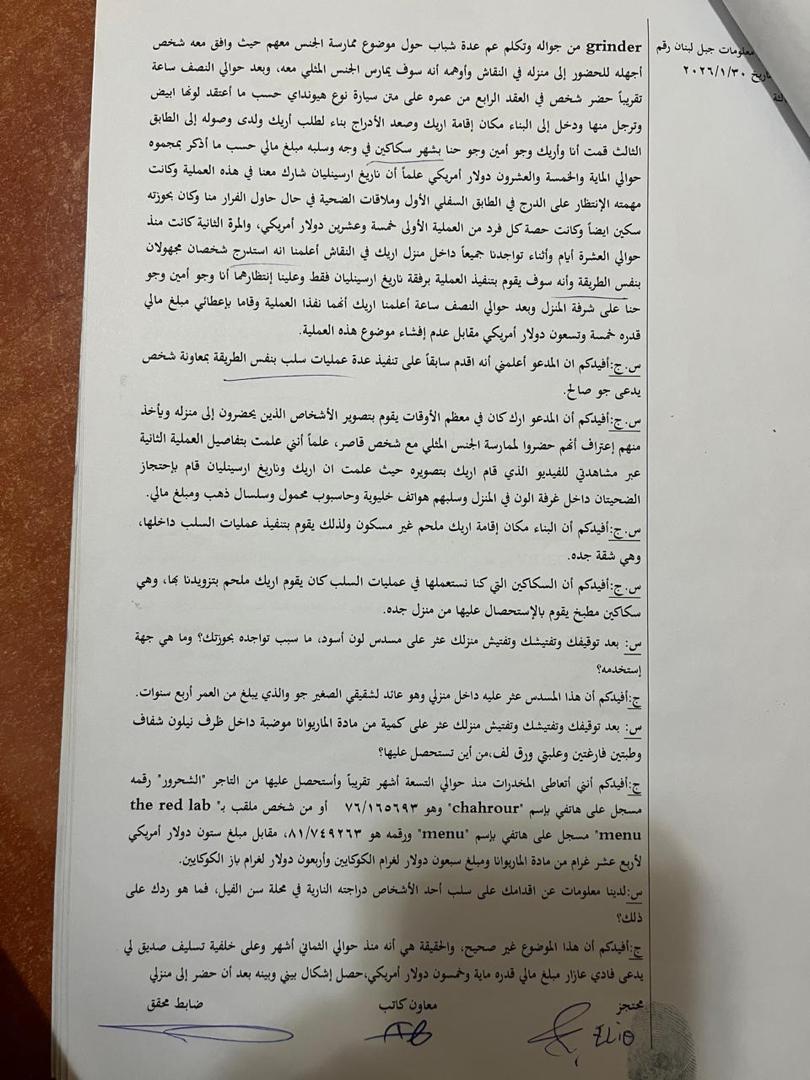 معلومات جبل لبنان رقم
تاريخ ٢٠٢٦/١/٣٠
grinder من جواله وتكلم عم عدة شباب حول موضوع ممارسة الجنس معهم حيث وافق معه شخص
أجهله للحضور إلى منزله في النقاش وأوهمه أنه سوف يمارس الجنس المثلي معه، وبعد حوالي النصف ساعة
تقريباً حضر شخص في العقد الرابع من عمره على متن سيارة نوع هيونداي حسب ما أعتقد لونها ابيض
وترجل منها ودخل إلى البناء مكان إقامة اريك وصعد الأدراج بناء لطلب أريك ولدى وصوله إلى الطابق
الثالث قمت أنا وأريك وجو أمين وجو حنا بشهر سكاكين في وجه وسلبه مبلغ مالي حسب ما أذكر بمجموه
حوالي الماية والخمسة والعشرون دولار أمريكي علماً أن ناريغ ارسينليان شارك معنا في هذه العملية وكانت
مهمته الإنتظار على الدرج في الطابق السفلي الأول وملاقات الضحية في حال حاول الفرار منا وكان بحوزته
سكين ايضاً وكانت حصة كل فرد من العملية الأولى خمسة وعشرين دولار أمريكي، والمرة الثانية كانت منذ
حوالي العشرة أيام وأثناء تواجدنا جميعاً داخل منزل اريك في النقاش أعلمنا انه استدرج شخصان مجهولان
بنفس الطريقة وأنه سوف يقوم بتنفيذ العملية برفقة ناريغ ارسينليان فقط وعلينا إنتظارهما أنا وجو أمين وجو
حنا على شرفة المنزل وبعد حوالي النصف ساعة أعلمنا اريك أنهما نفذا العملية وقاما بإعطائي مبلغ مالي
قدره خمسة وتسعون دولار أمريكي مقابل عدم إفشاء موضوع هذه العملية.
س.ج:أفيدكم ان المدعو أعلمني أنه اقدم سابقاً على تنفيذ عدة عمليات سلب بنفس الطريقة بمعاونة شخص
يدعى جو صالح.
س.ج:أفيدكم أن المدعو ارك كان في معظم الأوقات يقوم بتصوير الأشخاص الذين يحضرون إلى منزله ويأخذ
منهم إعتراف أنهم حضروا لممارسة الجنس المثلي مع شخص قاصر، علماً أنني علمت بتفاصيل العملية الثانية
عبر مشاهدتي للفيديو الذي قام اريك بتصويره حيث علمت ان اريك وناريغ ارسينليان قام بإحتجاز
الضحيتان داخل غرفة الون في المنزل وسلبهم هواتف خليوية وحاسبوب محمول وسلسال ذهب ومبلغ مالي.
س.ج:أفيدكم أن البناء مكان إقامة اريك ملحم غير مسكون ولذلك يقوم بتنفيذ عمليات السلب داخلها،
وهي شقة جده.
س.ج:أفيدكم أن السكاكين التي كنا نستعملها في عمليات السلب كان يقوم اريك ملحم بتزويدنا بها، وهي
سكاكين مطبخ يقوم بالإستحصال عليها من منزل جده.
س: بعد توقيفك وتفتيشك وتفتيش منزلك عثر على مسدس لون أسود، ما سبب تواجده بحوزتك؟ وما هي جهة
إستخدمه؟
ج:أفيدكم أن هذا المسدس عثر عليه داخل منزلي وهو عائد لشقيقي الصغير جو والذي يبلغ من العمر أربع سنوات.
س: بعد توقيفك وتفتيشك وتفتيش منزلك عثر على كمية من مادة الماريوانا موضبة داخل ظرف نيلون شفاف
وطبتين فارغتين وعلبتي ورق لف،من أين تستحصل عليها؟
ج:أفيدكم أنني أتعاطى المخدرات منذ حوالي التسعة أشهر تقريباً وأستحصل عليها من التاجر "الشحرور" رقمه
مسجل على هاتفي بإسم "chahrour" وهو ٧٦/١٦٥٦٩٣ أو من شخص ملقب بـ" the red lab
menu" مسجل على هاتفي بإسم "menu" ورقمه هو ٨١/٧٤٩٢٦٣، مقابل مبلغ ستون دولار أمريكي
لأربع عشر غرام من مادة الماريوانا ومبلغ سبعون دولار لغرام الكوكايين وأربعون دولار لغرام باز الكوكايين.
س:لدينا معلومات عن اقدامك على سلب أحد الأشخاص دراجته النارية في محلة سن الفيل، فما هو ردك على
ذلك؟
ج:أفيدكم أن هذا الموضوع غير صحيح، والحقيقة هي أنه منذ حوالي الثماني أشهر وعلى خلفية تسليف صديق لي
يدعى فادي عازار مبلغ مالي قدره ماية وخمسون دولار أمريكي،حصل إشكال بيني وبينه بعد أن حضر إلى منزلي
محتجز معاون كاتب ضابط محقق
ELIO